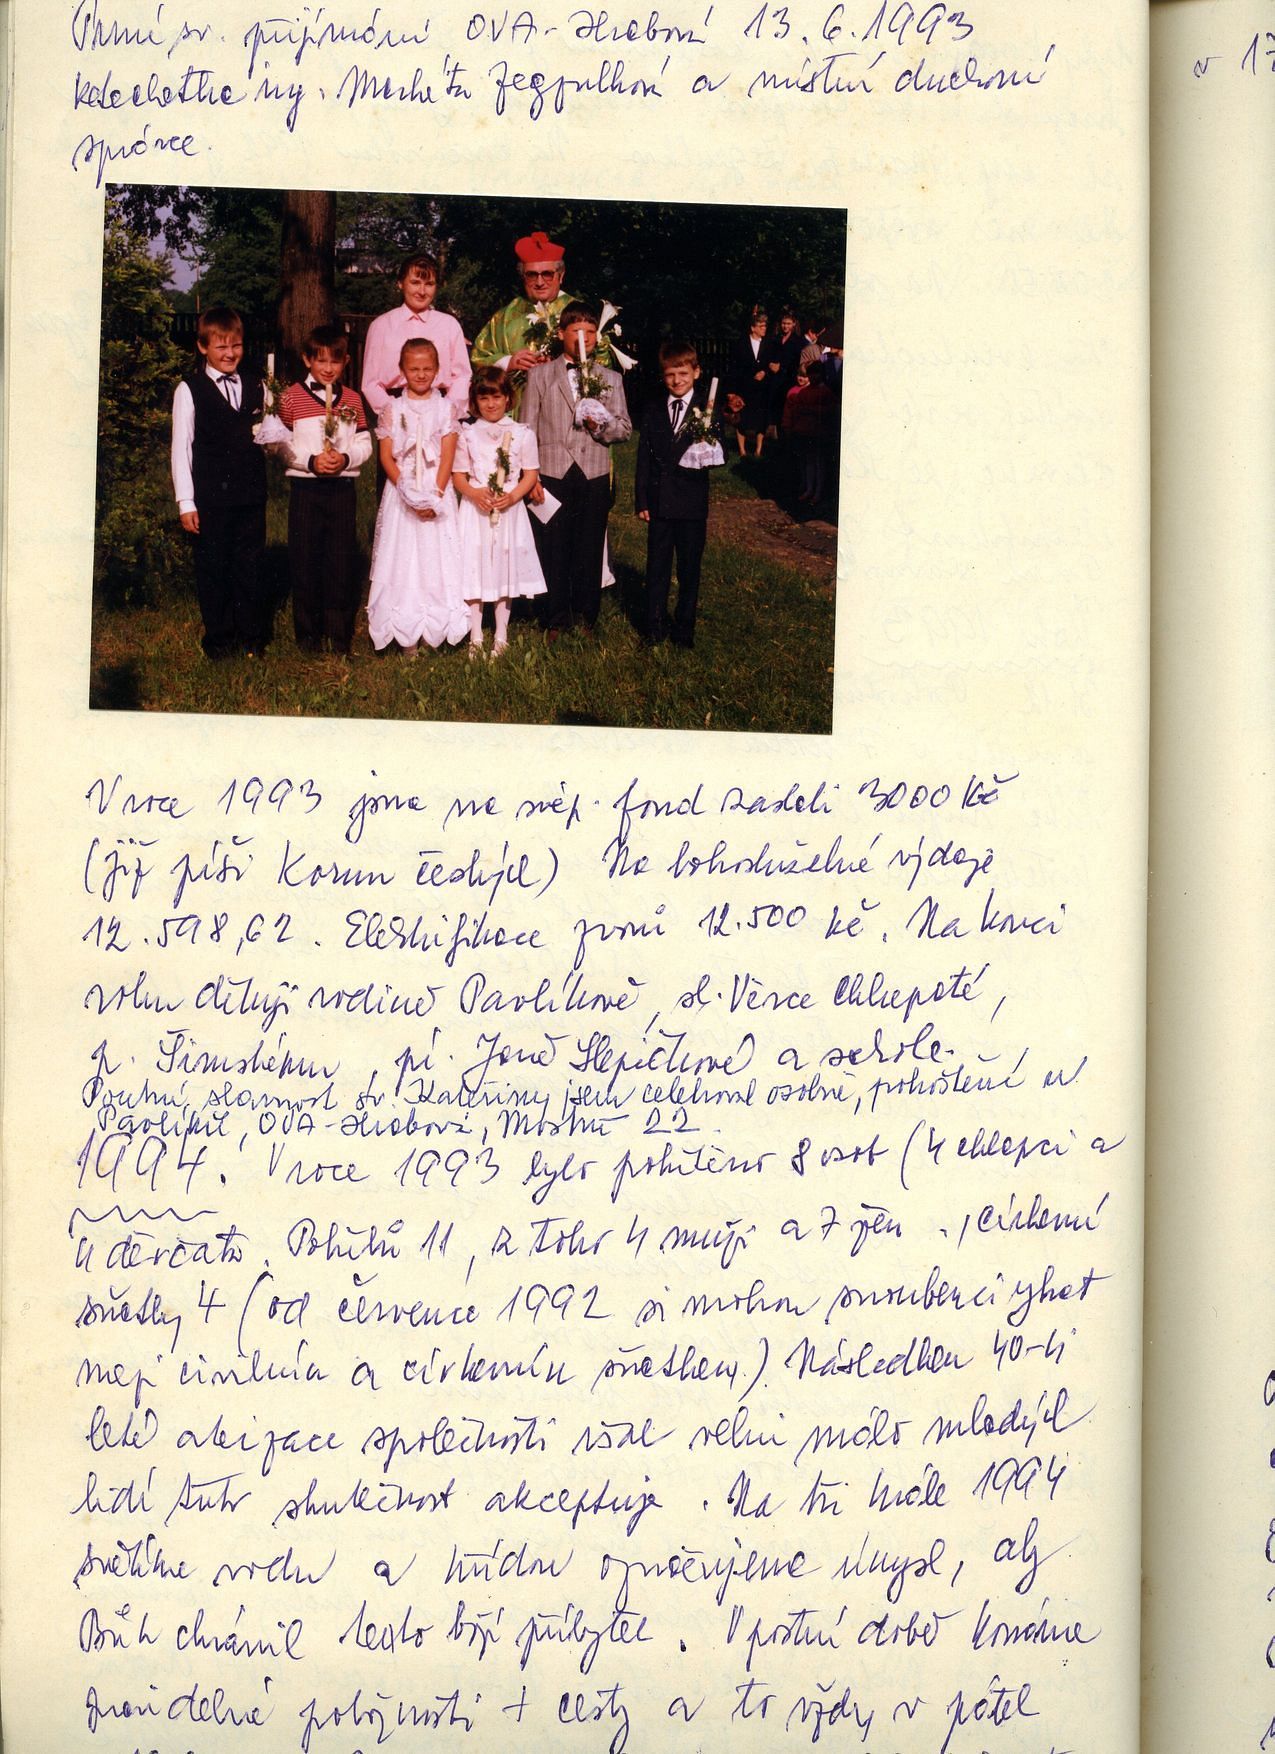 První sv. přijímání OVA-Hrabová 13.6.1993
katechetka ing. Markéta a místní duchovní
správce.
v 17
V roce 1993 jsme na svép. fond zaslali 3000 Kč
(již píši Korun českých) Na bohoslužebné výdaje
12.598,62. Elektrifikace zvonů 12.500 kč. Na konci
roku děkuji rodině Pavlíkově, sl. Věrce Chlopaté,
p. Šimskému, pí. Janě Slepičkové a
Poutní slavnost sv. Kateřiny jsem celebroval osobně, pohoštění u
Pavlíků, OVA-Hrabová, Mostní 22.
1994. V roce 1993 bylo pokřtěno 8 osob (4 chlapci a
4 děvčata. Pohřbů 11, z toho 4 muži a 7 žen., církevní
sňatky 4 (od července 1992 si mohou snoubenci vybrat
mezi civilním a církevním sňatkem). Následkem 40-ti
leté ateizace společnosti však velmi málo mladých
lidí tuto skutečnost akceptuje. Na tři krále 1994
světíme vodu a křídou označujeme úmysl, aby
Bůh chránil tento boží příbytek. V postní době konáme
pravidelné pobožnosti + cesty a to vždy v pátek